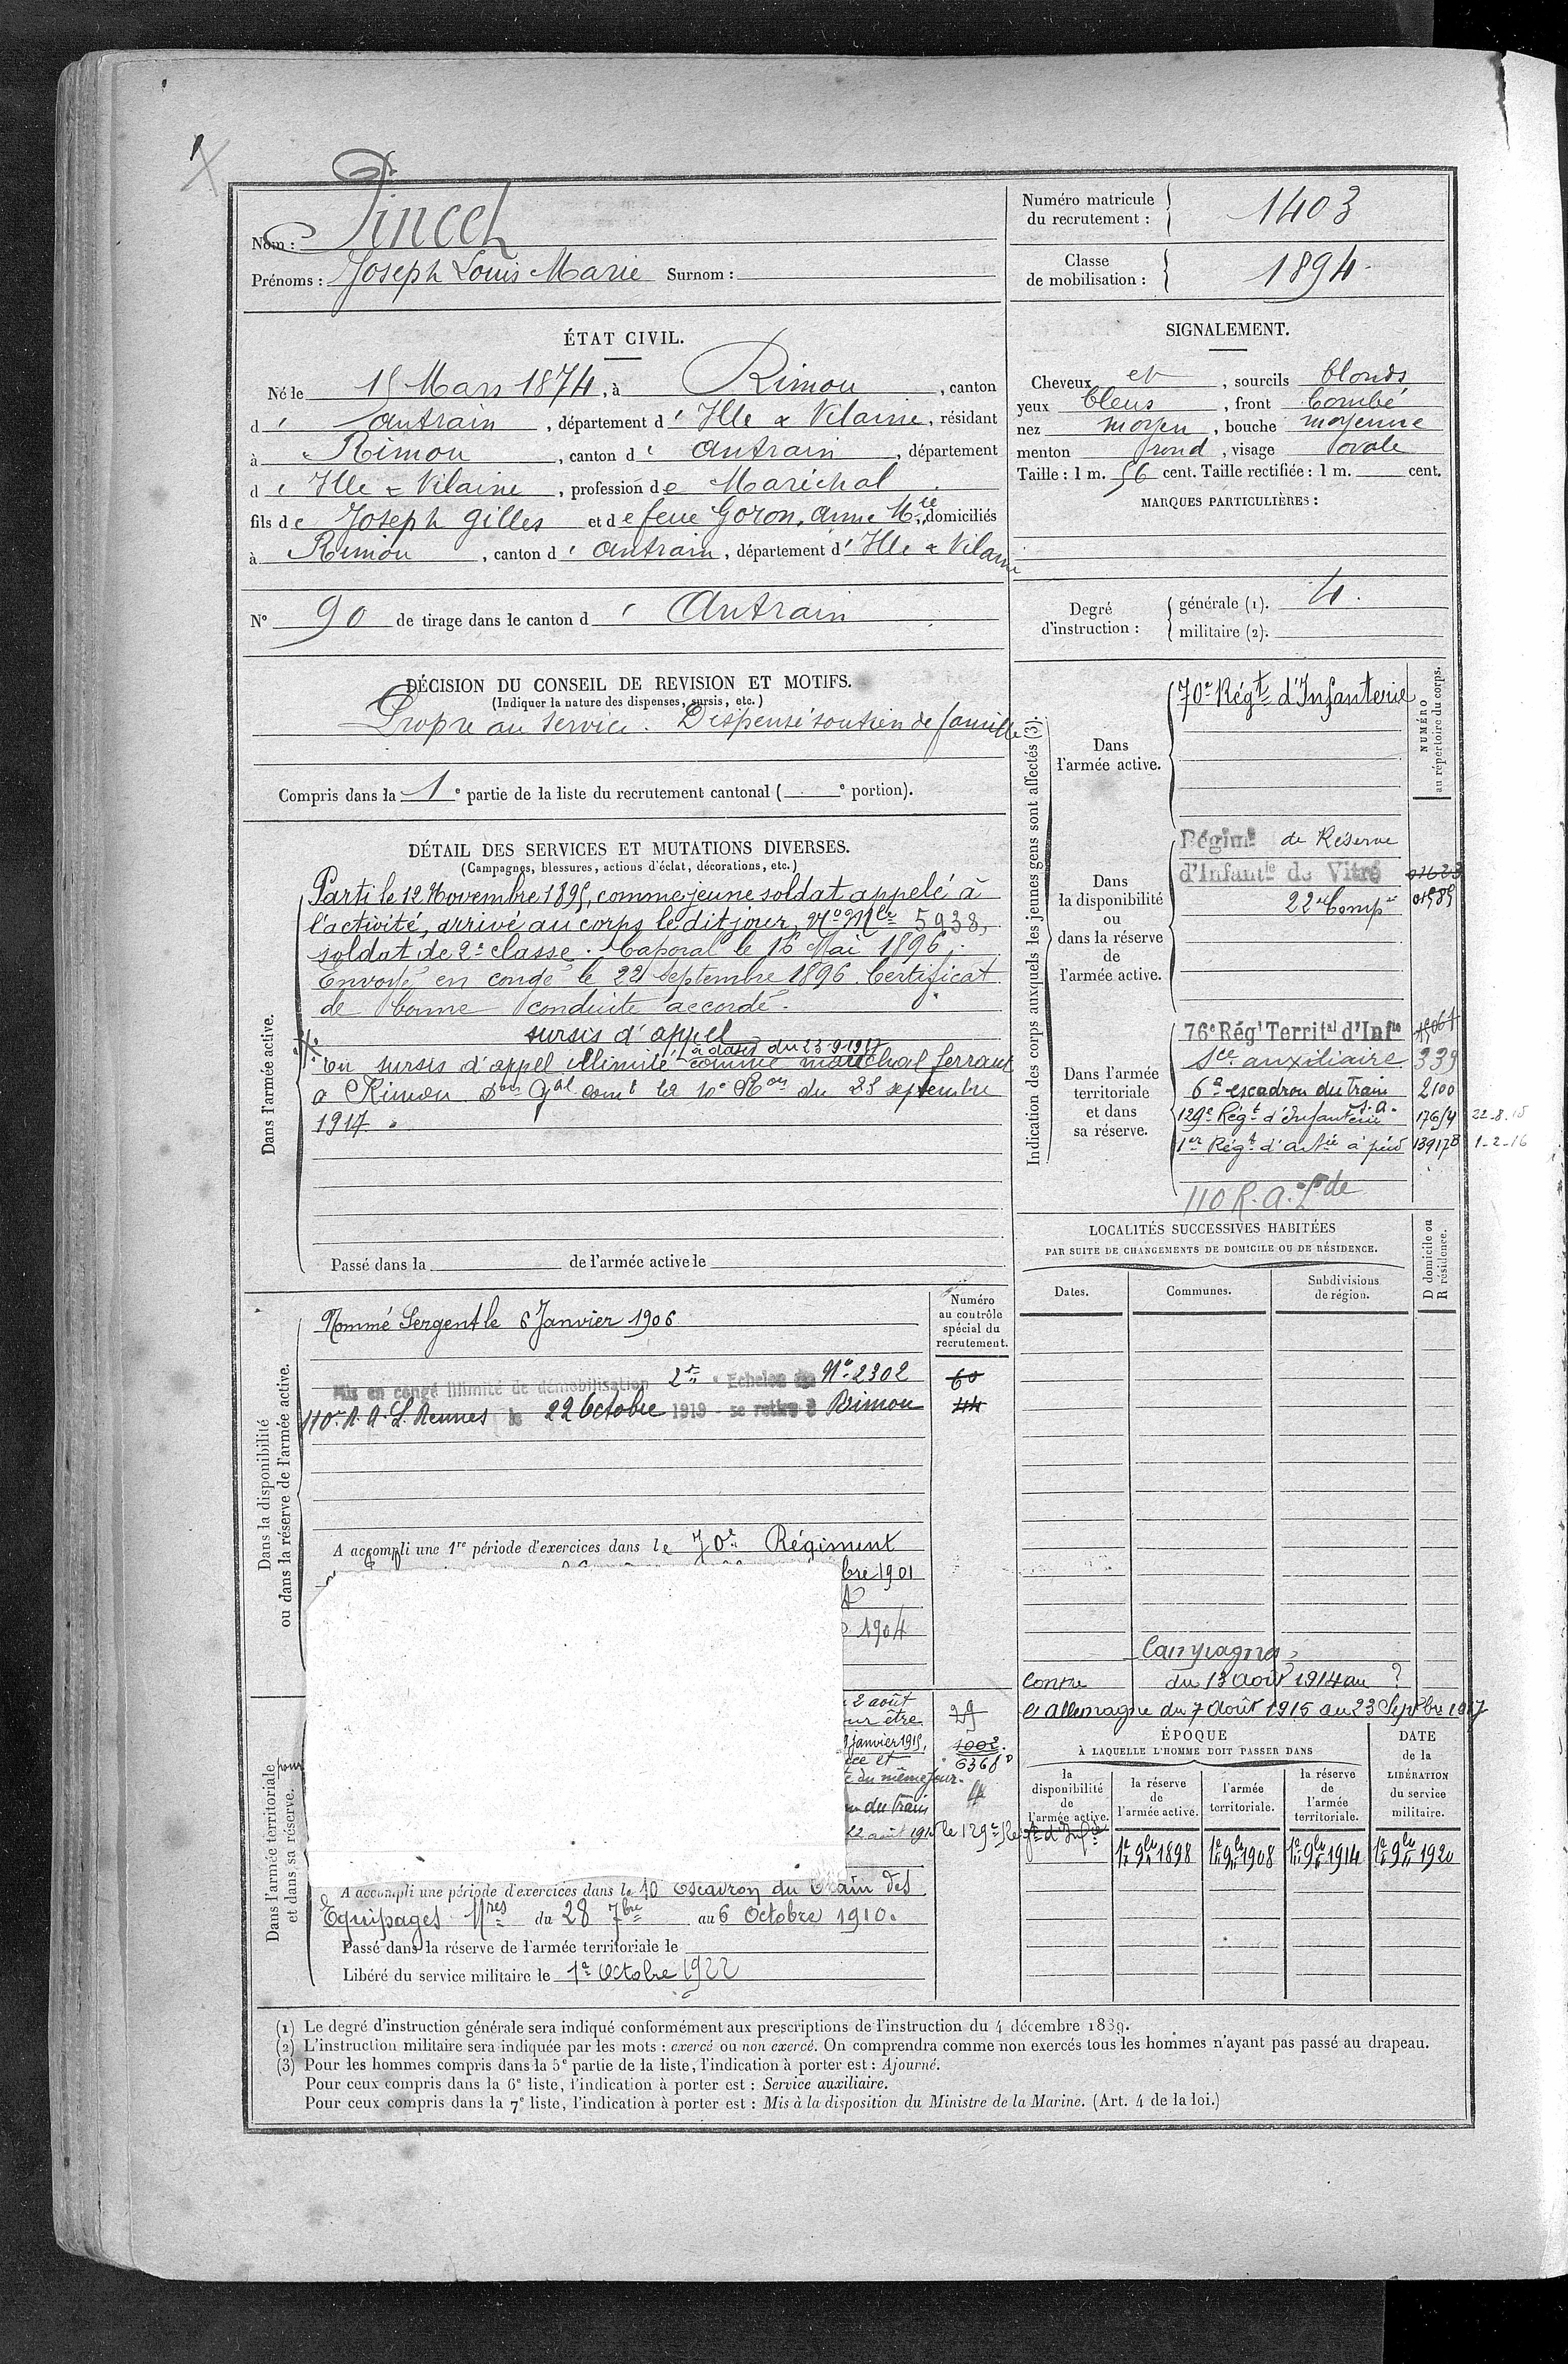 Nom : Pincel
Prénoms : Joseph Louis Marie Surnom :
Numéro matricule du recrutement : 1403
Classe de mobilisation : 1894
ÉTAT CIVIL.
Né le 15 Mars 1874, à Rimou, canton
d' Antrain, département d' Ille & Vilaine, résidant
à Rimou, canton d' Antrain, département
d' Ille & Vilaine, profession de Maréchal
fils de Joseph Gilles et de feue Goron, Anne Mie, domiciliés
à Rimou, canton d' Antrain, département d' Ille & Vilaine
N° 90 de tirage dans le canton d' Antrain
SIGNALEMENT.
Cheveux et, sourcils blonds
yeux bleus, front bombé
nez moyen, bouche moyenne
menton rond, visage ovale
Taille : 1 m. 56 cent. Taille rectifiée : 1 m. cent.
MARQUES PARTICULIÈRES :
Degré d'instruction : générale (1). 4.
militaire (2).
DÉCISION DU CONSEIL DE REVISION ET MOTIFS.
(Indiquer la nature des dispenses, sursis, etc.)
Propre au service. Dispensé soutien de famille
Compris dans la 1e partie de la liste du recrutement cantonal ( e portion).
DÉTAIL DES SERVICES ET MUTATIONS DIVERSES.
(Campagnes, blessures, actions d'éclat, décorations, etc.)
Dans l'armée active.
Parti le 12 Novembre 1895, comme jeune soldat appelé à
l'activité, arrivé au corps le dit jour, No Mle 5938,
soldat de 2e classe. Caporal le 16 Mai 1896.
Envoyé en congé le 22 Septembre 1896. Certificat
de bonne conduite accordé.
sursis d'appel
à dater du 23-9-1917
En sursis d'appel illimité comme maréchal ferrant
a Rimou Don Gal comt la 10e Ron du 25 septembre
1917.
Passé dans la de l'armée active le
Indication des corps auxquels les jeunes gens sont affectés (3).
NUMÉRO au répertoire du corps.
Dans l'armée active.
70e Régt d'Infanterie
Dans la disponibilité ou dans la réserve de l'armée active.
Régimt de Réserve
d'Infantie de Vitré
22e Compie 01585
Dans l'armée territoriale et dans sa réserve.
76e Régt Territal d'Infie
Sce auxiliaire 339
6e escadron du Train 2100
129e Régt d'Infanterie S.A. 17614 22-8-15
1er Régt d'artie à pied 13917B 1-2-16
110 R.A.Lde
LOCALITÉS SUCCESSIVES HABITÉES
PAR SUITE DE CHANGEMENTS DE DOMICILE OU DE RÉSIDENCE.
Dates. Communes. Subdivisions de région. D domicile ou R résidence.
Dans la disponibilité ou dans la réserve de l'armée active.
Numéro au contrôle spécial du recrutement.
Nommé Sergent le 6 Janvier 1906
Mis en congé illimité de démobilisation 2e Echelon No 2302 60
110e R.A.L. Rennes le 22 Octobre 1919 - se retire à Rimou 44
A accompli une 1re période d'exercices dans le 70e Régiment
bre 1901
1904
Campagnes
contre du 13 août 1914 au ?
l'Allemagne du 7 Août 1915 au 23 Septbre 1917
Dans l'armée territoriale et dans sa réserve.
2 août
pour être
janvier 1915, 1002.
6368
du même jour.
du train
22 août 1915 le 129e Régt d'Infie
A accompli une période d'exercices dans le 10 escadron du train des
Équipages Mres du 28 7bre au 6 Octobre 1910.
Passé dans la réserve de l'armée territoriale le
Libéré du service militaire le 1er Octobre 1922
ÉPOQUE
À LAQUELLE L'HOMME DOIT PASSER DANS
la disponibilité de l'armée active. la réserve de l'armée active. l'armée territoriale. la réserve de l'armée territoriale.
DATE de la LIBÉRATION du service militaire.
1er 9bre 1898 1er 9bre 1908 1er 9bre 1914 1er 9bre 1920
(1) Le degré d'instruction générale sera indiqué conformément aux prescriptions de l'instruction du 4 décembre 1889.
(2) L'instruction militaire sera indiquée par les mots : exercé ou non exercé. On comprendra comme non exercés tous les hommes n'ayant pas passé au drapeau.
(3) Pour les hommes compris dans la 5e partie de la liste, l'indication à porter est : Ajourné.
Pour ceux compris dans la 6e liste, l'indication à porter est : Service auxiliaire.
Pour ceux compris dans la 7e liste, l'indication à porter est : Mis à la disposition du Ministre de la Marine. (Art. 4 de la loi.)